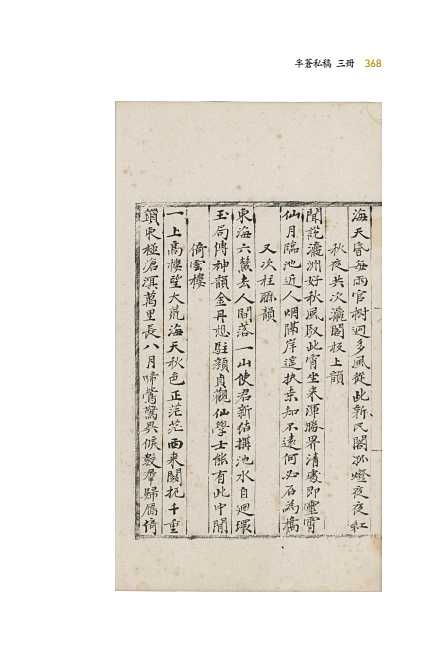 半蒼私稿 三冊 368
海天昏每雨官樹迥多風從此新民閣孤燈夜夜紅
秋夜共次瀛閣板上韻
聞說瀛洲好秋風取此宵坐來渾勝界清處即靈霄
仙月臨池近人烟隔岸遙扶桑知不遠何必石為橋
又次柱聯韻
東海六鰲去人間落一山使君新結撰池水自迴環
玉局傳神韻金丹想駐顏貞觀仙學士能有此中閒
倚雲樓
一上高樓望大荒海天秋色正茫茫雨來關扼千重
鎖東極滄溟萬里長八月啼鶯驚異候數羣歸鴈倚